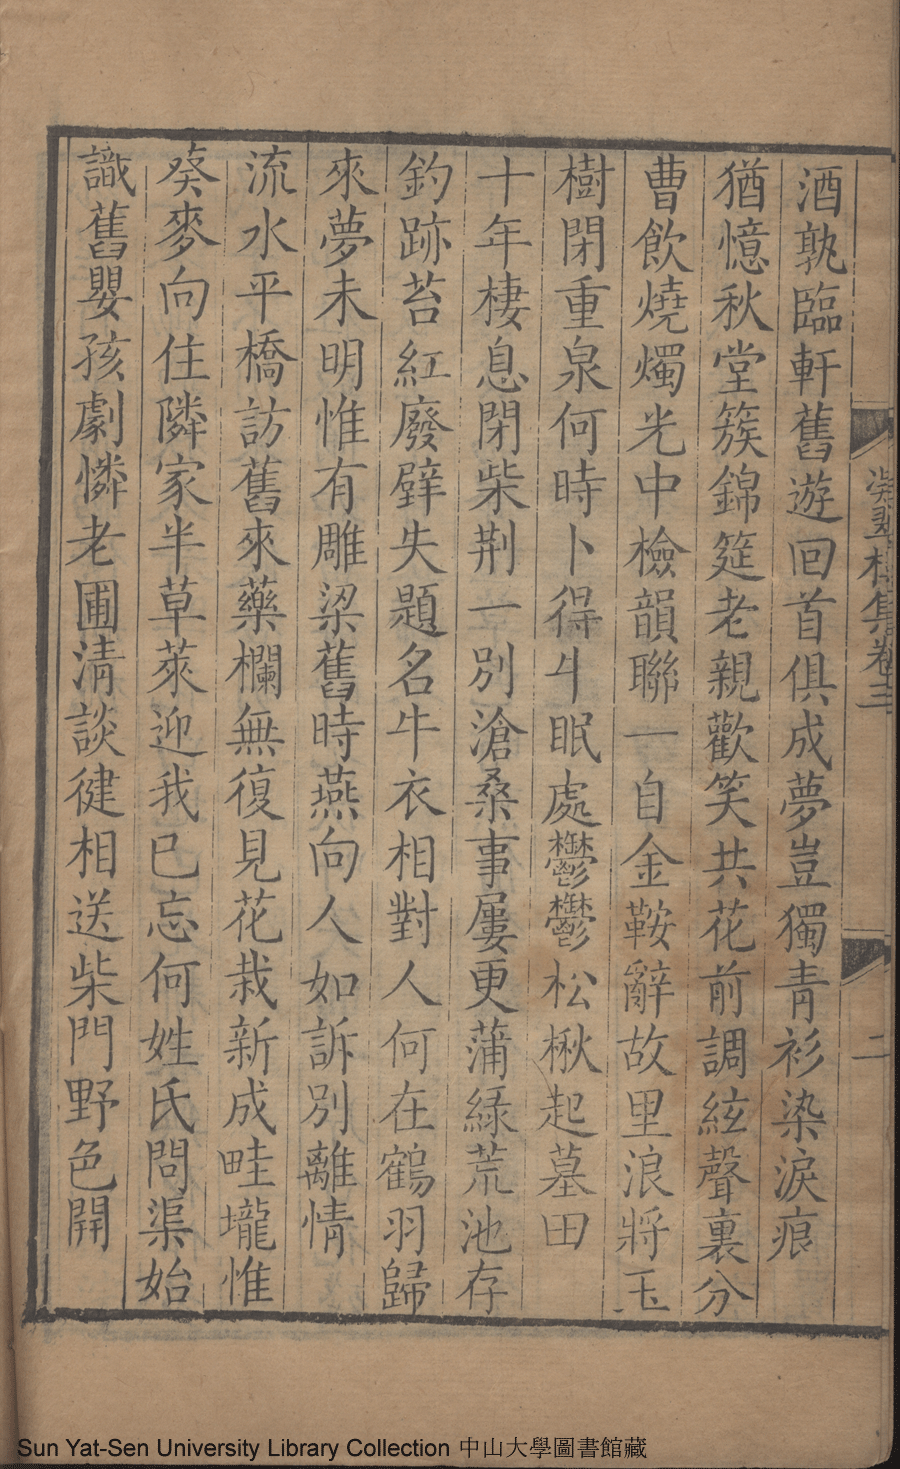 二
酒孰臨軒舊遊回首俱成夢豈獨青衫染淚痕
猶憶秋堂簇錦筵老親歡笑共花前調絃聲裏分
曹飲燒燭光中檢韻聯一自金鞍辭故里浪將玉
樹閉重泉何時卜得牛眠處鬱鬱松楸起墓田
十年棲息閉柴荆一別滄桑事屢更蒲綠荒池存
釣跡苔紅廢壁失題名牛衣相對人何在鶴羽歸
來夢未明惟有雕梁舊時燕向人如訴別離情
流水平橋訪舊來藥欄無復見花栽新成畦壠惟
葵麥向住隣家半草萊迎我已忘何姓氏問渠始
識舊嬰孩劇憐老圃清談健相送柴門野色開
Sun Yat-Sen University Library Collection 中山大學圖書館藏